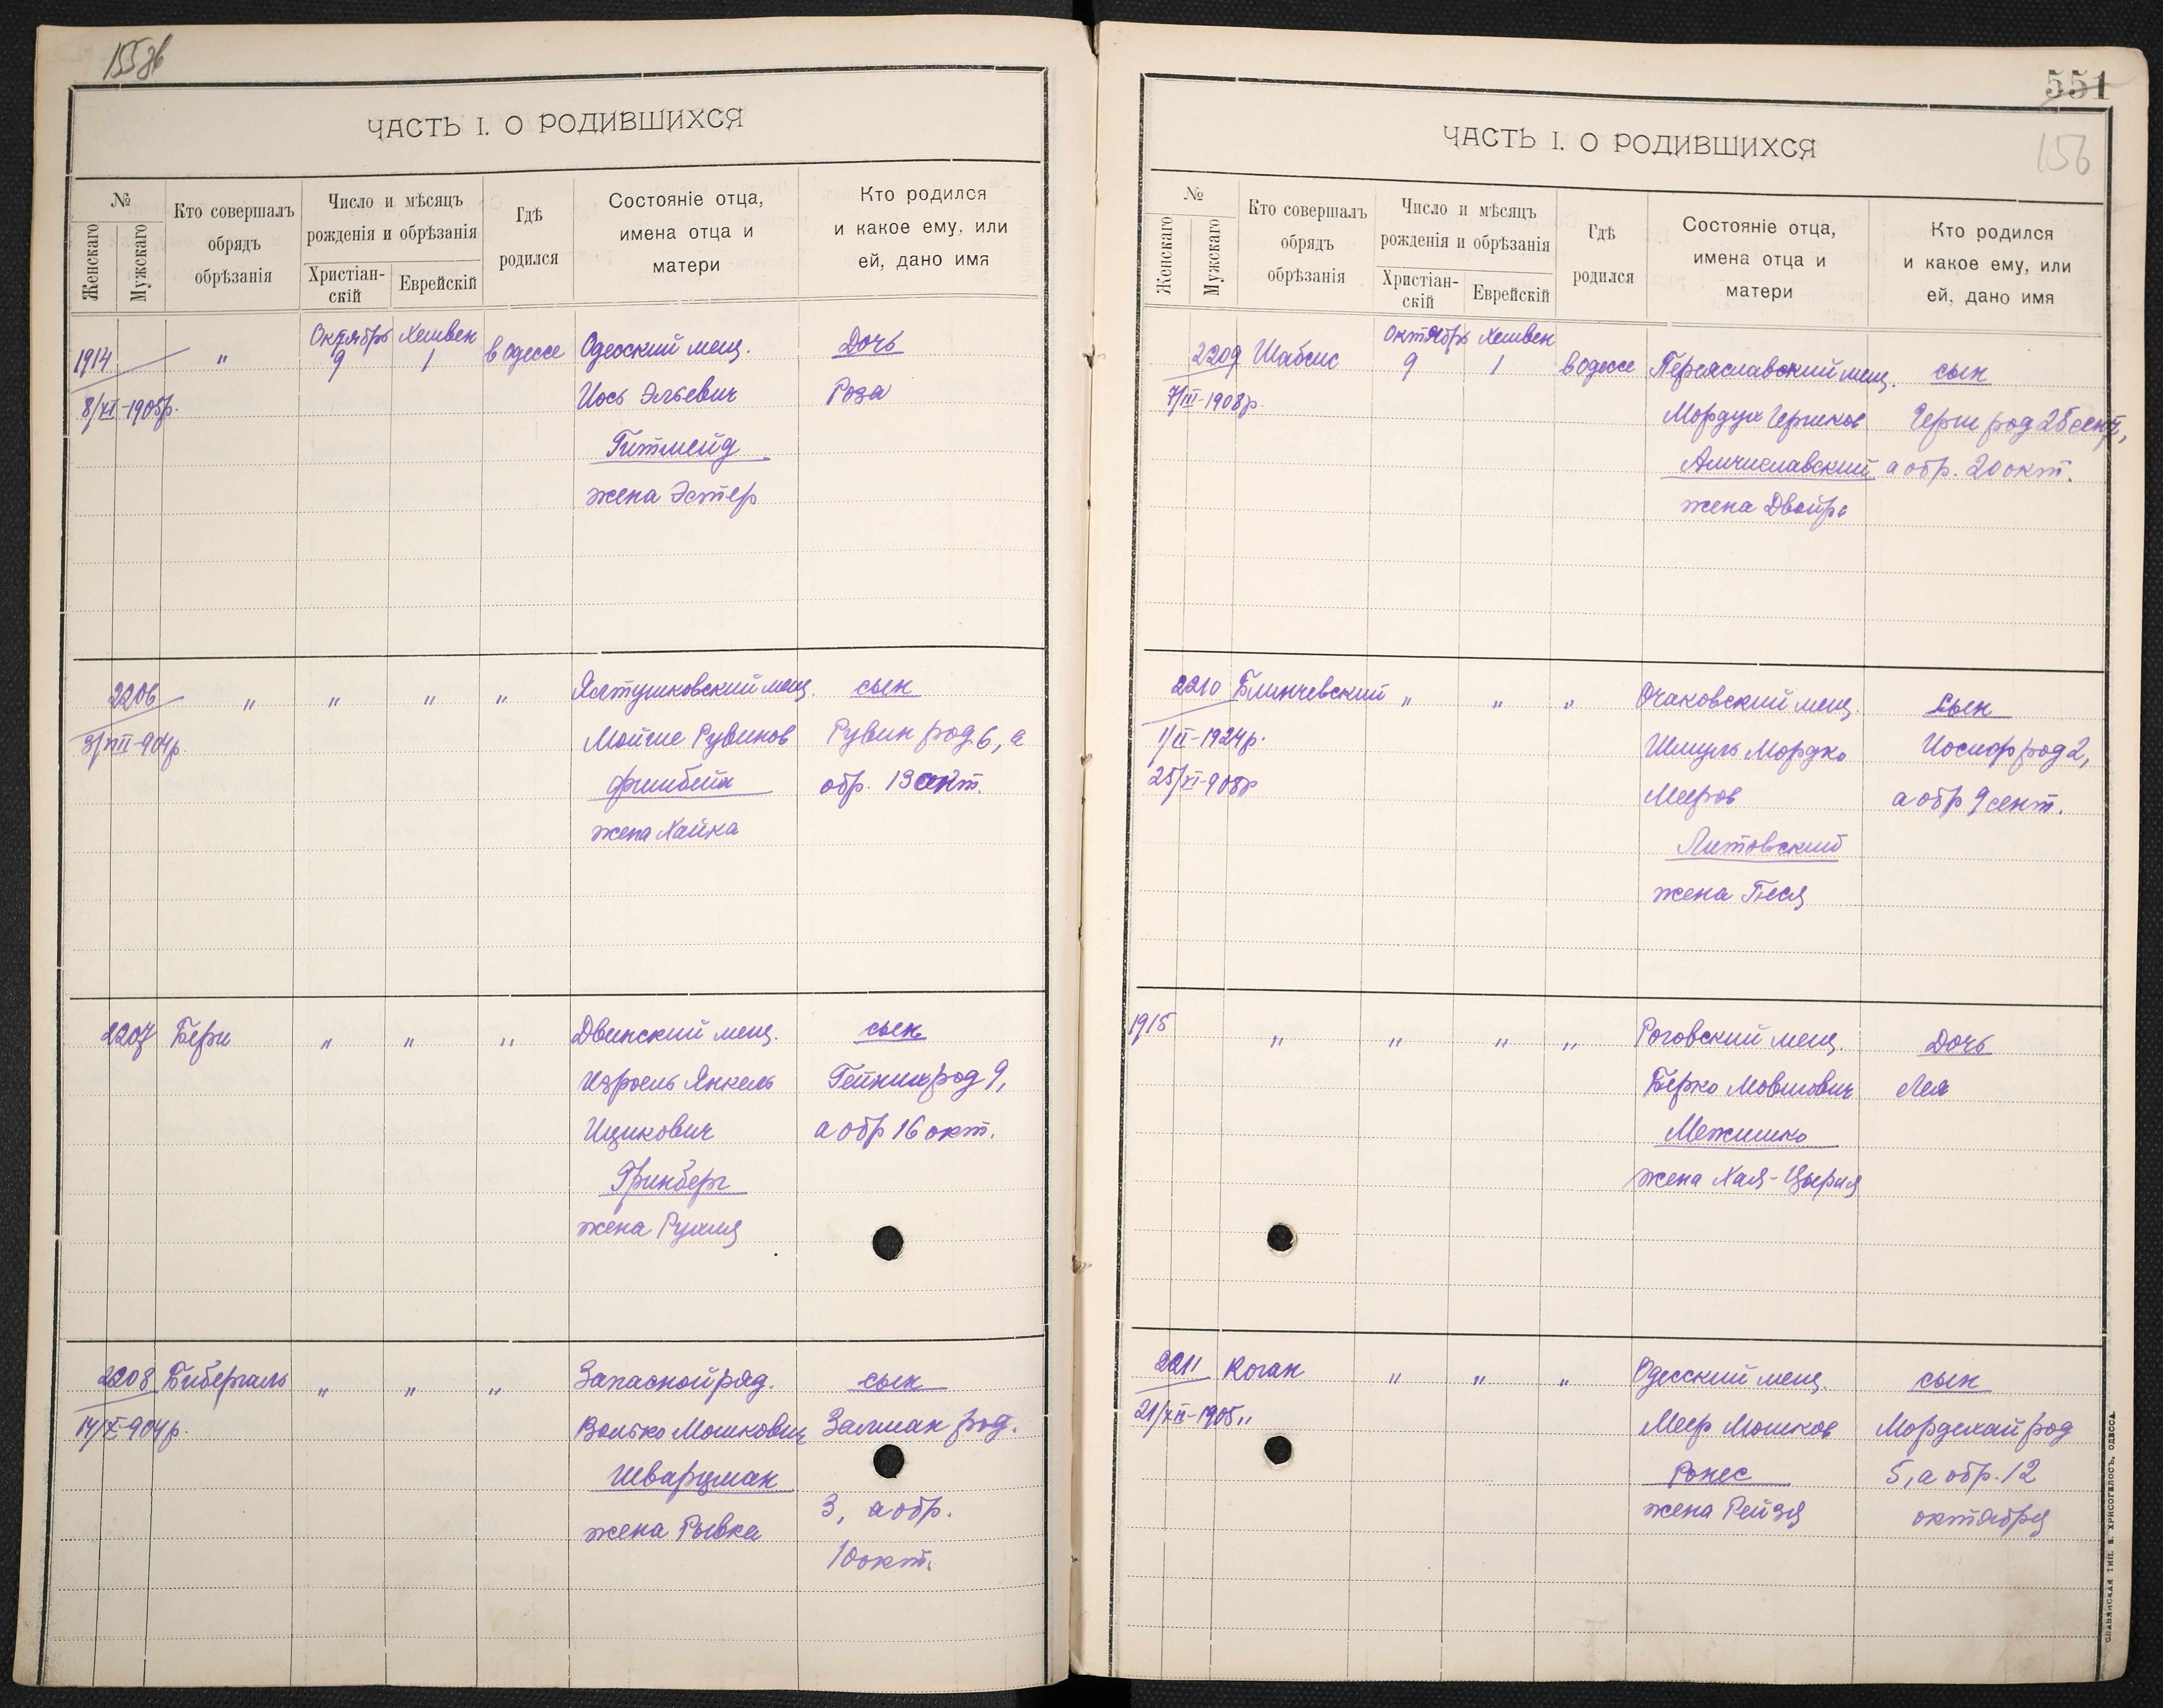 155 зв
ЧАСТЬ I. О РОДИВШИХСЯ
№
Женскаго
Мужскаго
Кто совершалъ
обрядъ
обрѣзанія
Число и мѣсяцъ
рожденія и обрѣзанія
Христіан-
скій
Еврейскій
Гдѣ
родился
Состояніе отца,
имена отца и
матери
Кто родился
и какое ему, или
ей, дано имя
Октябрь Хешвен
1914 " 9 1 в Одессе Одесский мещ. Дочь
8/XI-1905р. Иось Эльевич Роза
Гитмейд
жена Эстер
2206 " " " " Ялтушковский мещ. сын
Мойше Рувинов Рувин род 6, а
Фишбейн обр. 13 окт.
жена Хайка
2207 Бери " " " Двинский мещ. сын
Израель Янкель Гейних род 9,
Ицикович а обр 16 окт.
Гринберг
жена Рухля
2208 Бибергаль " " " Запасной ряд. сын
14/X-904р. Волько Мошкович Залман род.
Шварцман 3, а обр.
жена Рывка 10 окт.
551
156
ЧАСТЬ I. О РОДИВШИХСЯ
№
Женскаго
Мужскаго
Кто совершалъ
обрядъ
обрѣзанія
Число и мѣсяцъ
рожденія и обрѣзанія
Христіан-
скій
Еврейскій
Гдѣ
родился
Состояніе отца,
имена отца и
матери
Кто родился
и какое ему, или
ей, дано имя
Октябрь Хешвен
2209 Шабсис 9 1 в Одессе Переяславский мещ. сын
7/III-1908р. Мордух Гершков Герш род 25 сент,
Амчиславский а обр. 20 окт.
жена Двойра
2210 Блинчевский " " " Очаковский мещ. Сын
1/II-1924р. Шмуль Мордко Иосиф род 2,
25/XI-908р Мееров а обр 9 сент.
Литовский
жена Песя
1915 " " " " Роговский мещ. Дочь
Берко Мовшович Лея
Межишко
жена Хая-Цырля
2211 Коган " " " Одесский мещ. сын
21/XII-1905 " Меер Мошков Мордехай род
Ронес 5, а обр. 12
жена Рейзя октября
СЛАВЯНСКАЯ ТИП. Н. ХРИСОГЕЛОСЪ, ОДЕССА.